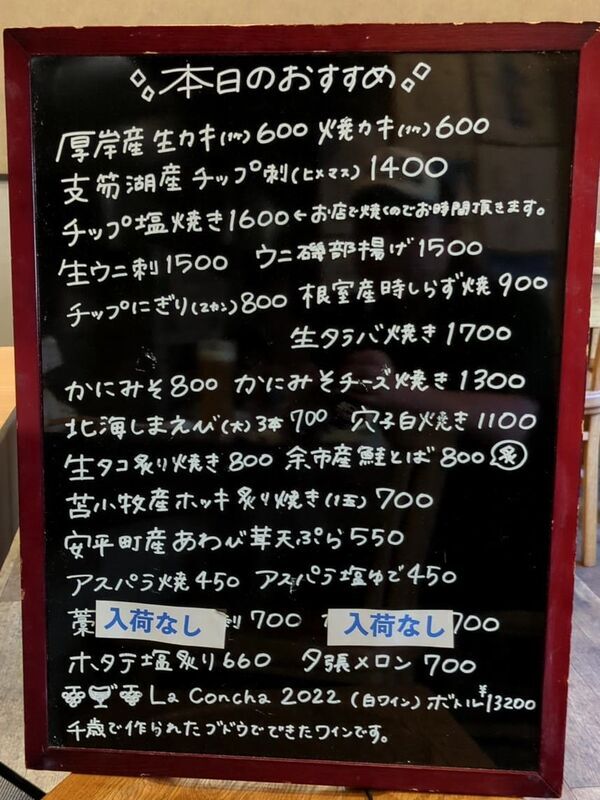 本日のおすすめ
厚岸産 生カキ(1ケ)600 焼カキ(1ケ)600
支笏湖産 チップ刺(ヒメマス)1400
チップ塩焼き1600←お店で焼くのでお時間頂きます。
生ウニ刺1500 ウニ磯部揚げ1500
チップにぎり(2カン)800 根室産時しらず焼900
生タラバ焼き1700
かにみそ800 かにみそチーズ焼き1300
北海しまえび(大)3本700 穴子白焼き1100
生タコ炙り焼き800 余市産鮭とば800 炙
苫小牧産ホッキ炙り焼き(1コ)700
安平町産あわび茸天ぷら550
アスパラ焼450 アスパラ塩ゆで450
藁 入荷なし 刺700 入荷なし 700
ホタテ塩炙り660 夕張メロン700
La Concha 2022 (白ワイン) ボトル¥13200
千歳で作られたブドウでできたワインです。